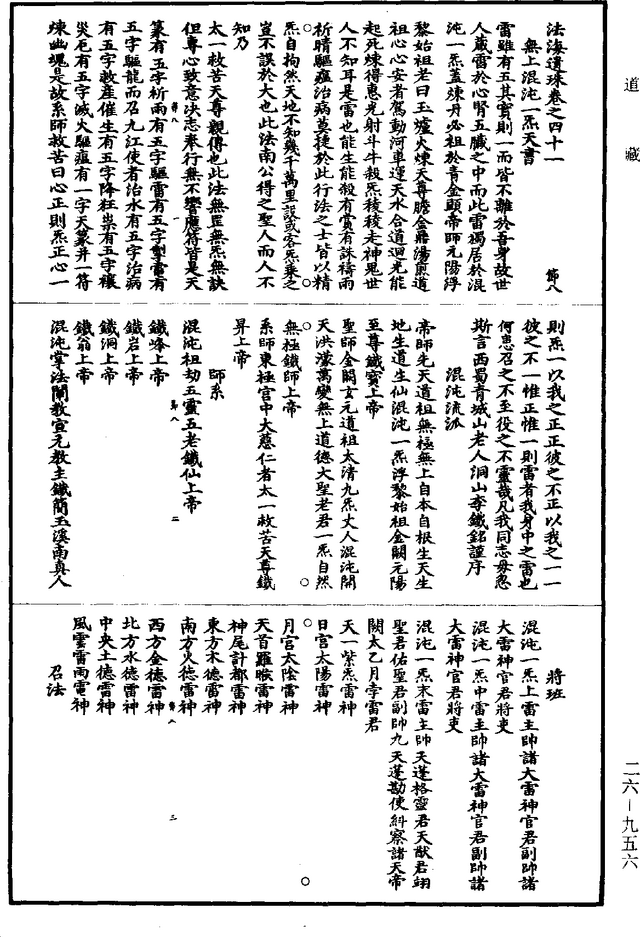 道藏
法海遺珠卷之四十一
節八
無上混沌一炁天書
雷雖有五其實則一而皆不離於吾身故世
人藏雷於心腎五臟之中而此雷獨居於混
沌一炁蓋煉丹必祖於青金顯帝師元陽浮
黎始祖老曰玉爐火煉天尊膽金鼎湯煎道
祖心心安者駕動河車運天水合道迴光能
起死煉得惠光射斗牛殺炁稜稜走神鬼世
人不知耳是雷也能生能殺有賞有誅禱雨
祈晴驅瘟治病莫捷於此行法之士皆以精
炁自拘然天地不知幾千萬里誤或客炁乘之
豈不誤於大也此法南公得之聖人而人不
知乃
太一救苦天尊親傳也此法無罡無炁無訣
但專心致意決志奉行無不響應符皆是天
篆有五字祈雨有五字驅雷有五字掣電有
五字驅龍而召九江使者治水有五字治病
有五字救產催生有五字降枉祟有五字禳
災厄有五字滅火驅瘟有一字天篆并一符
煉幽魂是故系師救苦曰心正則炁正心一
則炁一以我之正正彼之不正以我之一一
彼之不一惟正惟一則雷者我身中之雷也
何患召之不至役之不靈哉凡我同志毋忽
斯言西蜀青城山老人洞山李鐵銘謹序
混沌流派
帝師先天道祖無極無上自本自根生天生
地生道生仙混沌一炁浮黎始祖金闕元陽
至尊鐵寶上帝
聖師金闕玄元道祖太清九炁丈人混沌開
天洪濛萬變無上道德大聖老君一炁自然
無極鐵師上帝
系師東極宮中大慈仁者太一救苦天尊鐵
昇上帝
師系
混沌祖劫五靈五老鐵仙上帝
鐵峰上帝
鐵岩上帝
鐵洞上帝
鐵翁上帝
混沌掌法闡教宣元教主鐵簡玉溪南真人
將班
混沌一炁上雷主帥諸大雷神官君副帥諸
大雷神官君將吏
混沌一炁中雷主帥諸大雷神官君副帥諸
大雷神官君將吏
混沌一炁末雷主帥天蓬格靈君天猷君翊
聖君佑聖君副帥九天蓬勘使糾察諸天帝
闕太乙月孛雷君
天一紫炁雷神
日宮太陽雷神
月宮太陰雷神
天首羅睺雷神
神尾計都雷神
東方木德雷神
南方火德雷神
西方金德雷神
北方水德雷神
中央土德雷神
風雲雷雨電神
召法
二六—九五六